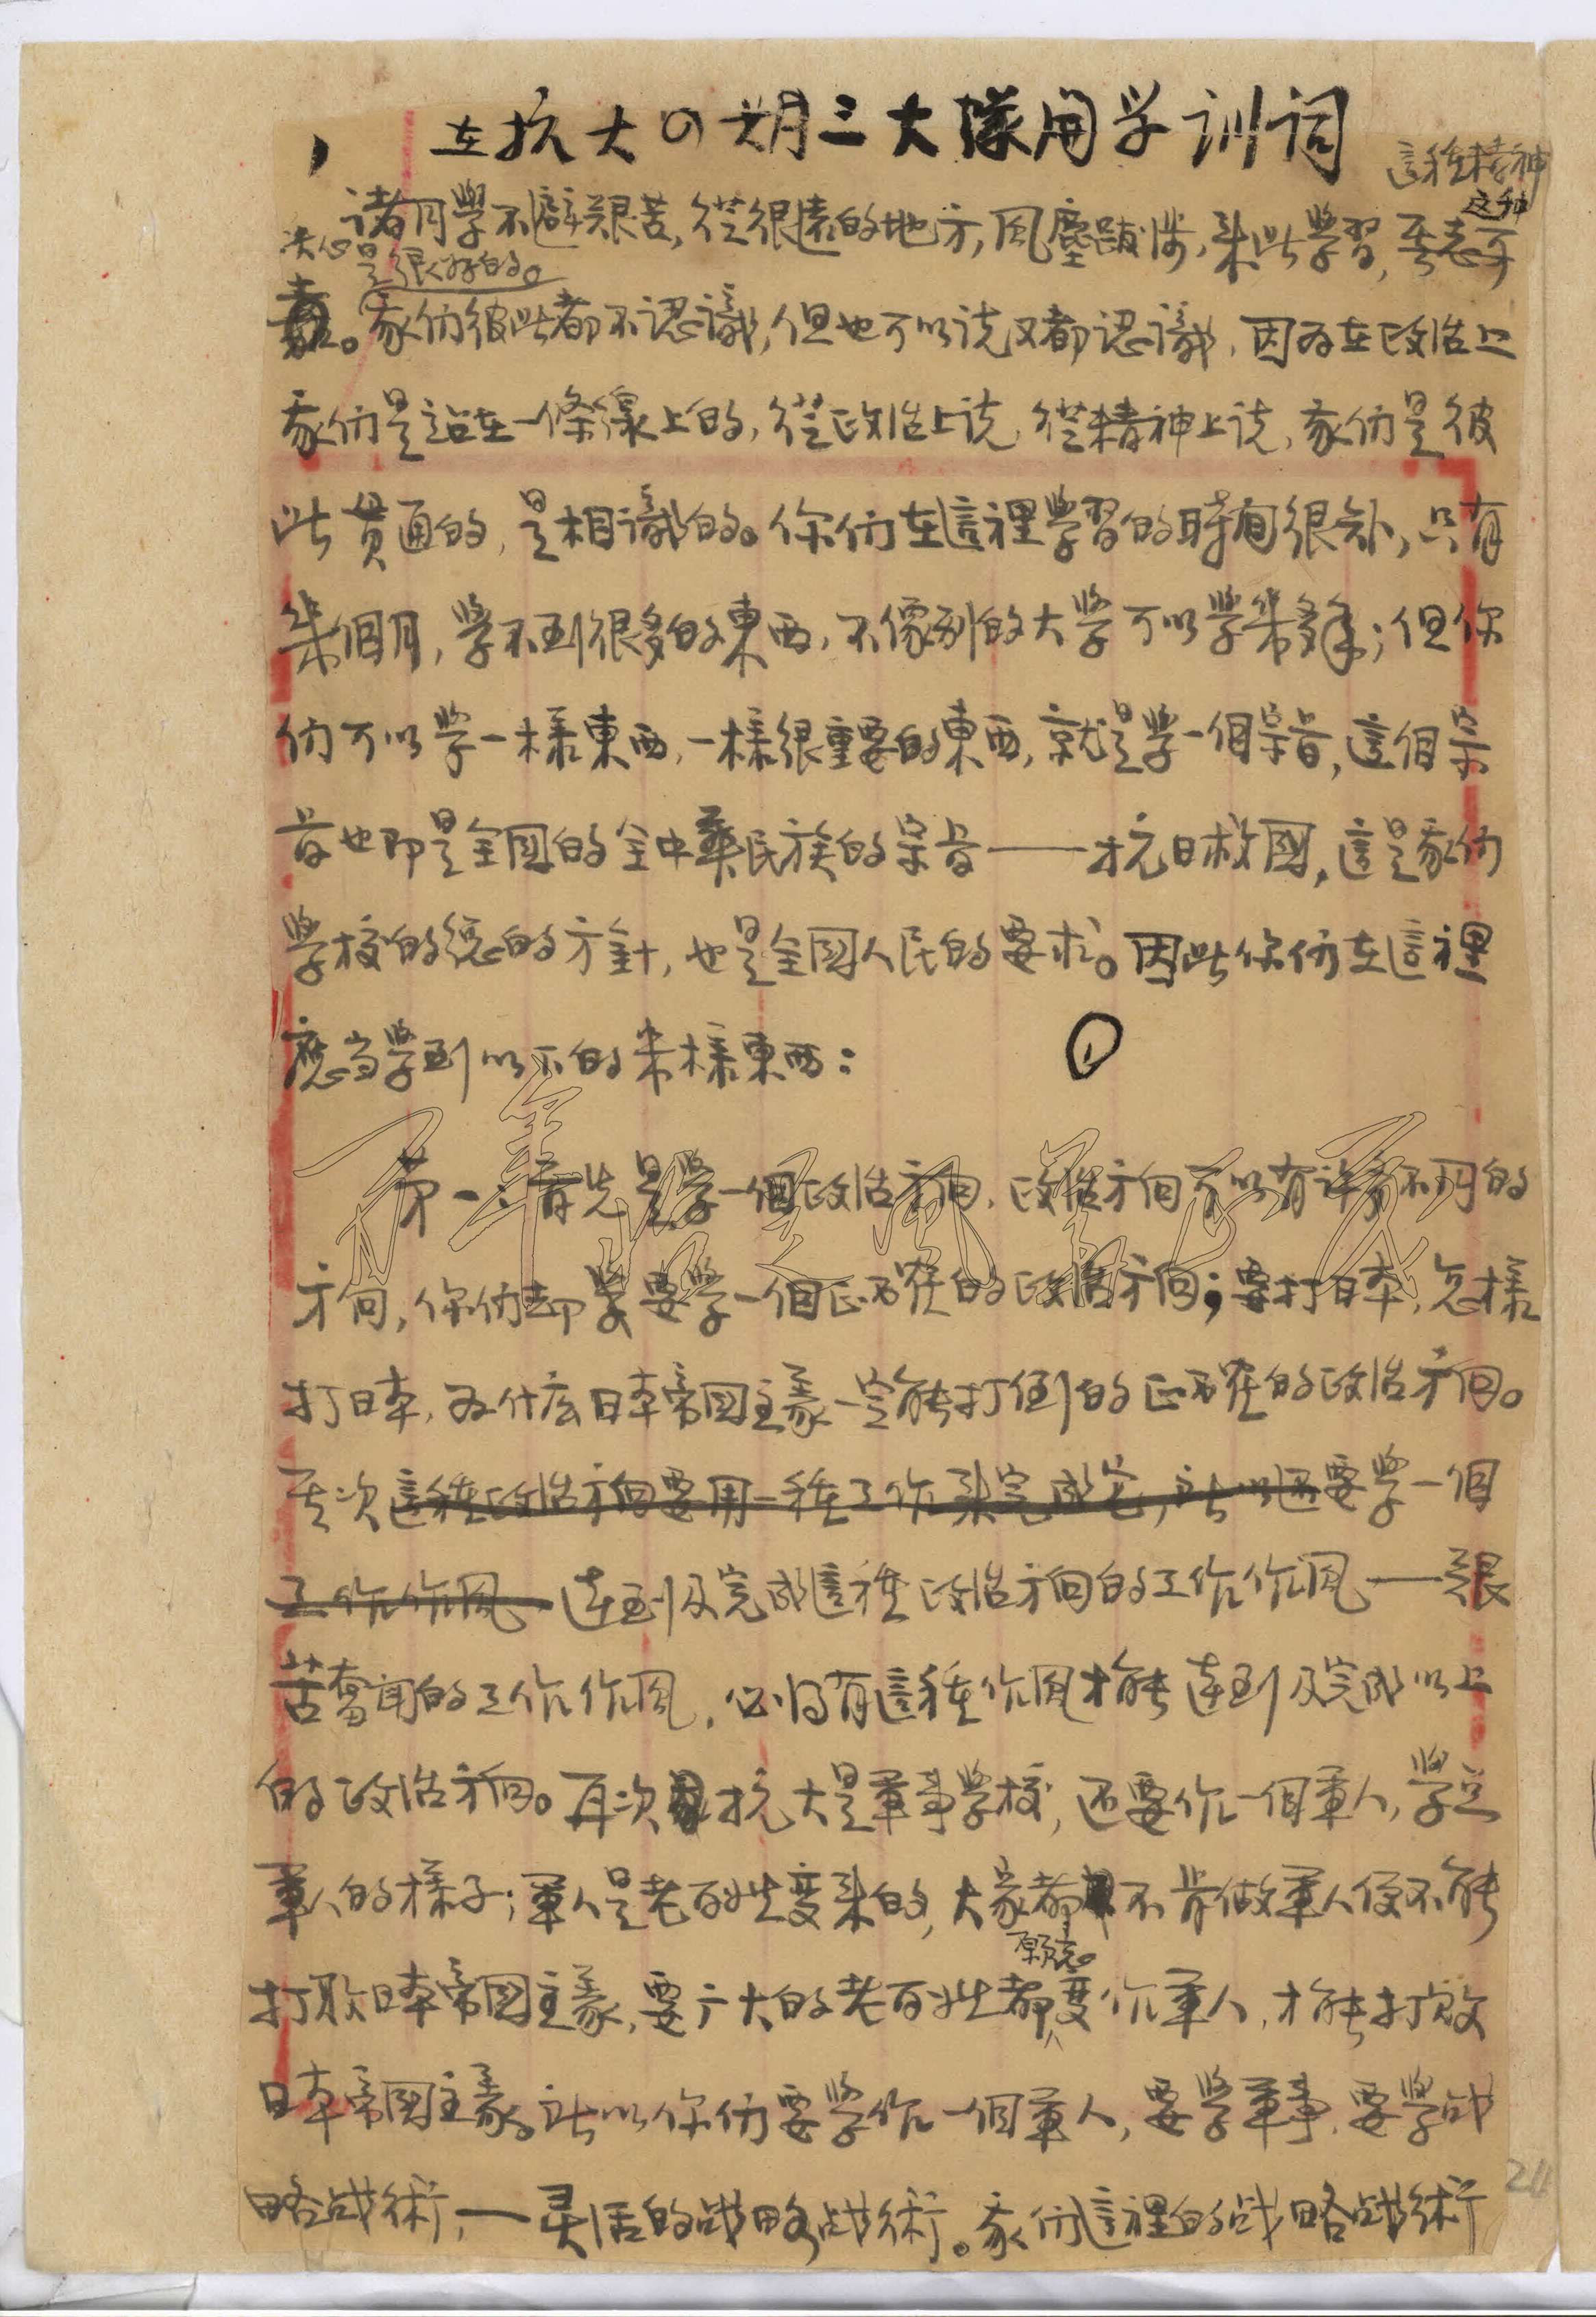 在抗大四期三大隊開学训词
這種精神
这种
諸同學不避艱苦,從很遠的地方,風塵跋涉,來此學習,其志可
决心是很好的。
嘉。我们彼此都不認識,但也可以说又都認識,因为在政治上
我们是站在一條線上的,從政治上说,從精神上说,我们是彼
此貫通的,是相識的。你们在這裡學習的時间很短,只有
幾個月,學不到很多的東西,不像别的大學可以學幾多年;但你
们可以學一樣東西,一樣很重要的東西,就是學一個宗旨,這個宗
旨也即是全國的全中華民族的宗旨——抗日救國,這是我们
學校的總的方針,也是全國人民的要求。因此你们在這裡
應当學到以下的幾樣東西:
1
第一、首先是學一個政治方向,政治方向可以有许多不同的
方向,你们却要學一個正确的政治方向;要打日本,怎樣
打日本,为什么日本帝國主義一定能打倒的正确的政治方向。
其次這種政治方向要用一種工作來完成它,所以还要學一個
工作作風 達到及完成這種政治方向的工作作風——艱
苦奮鬥的工作作風,必须有這種作風才能達到及完成以上
的政治方向。再次抗大是軍事學校,还要作一個軍人,學点
軍人的樣子;軍人是老百姓變來的,大家都不肯做軍人便不能
願意
打敗日本帝國主義,要广大的老百姓都變作軍人,才能打敗
日本帝國主義。所以你们要學作一個軍人,要學軍事,要學战
略战術,—灵活的战略战術。我们這裡的战略战術
211